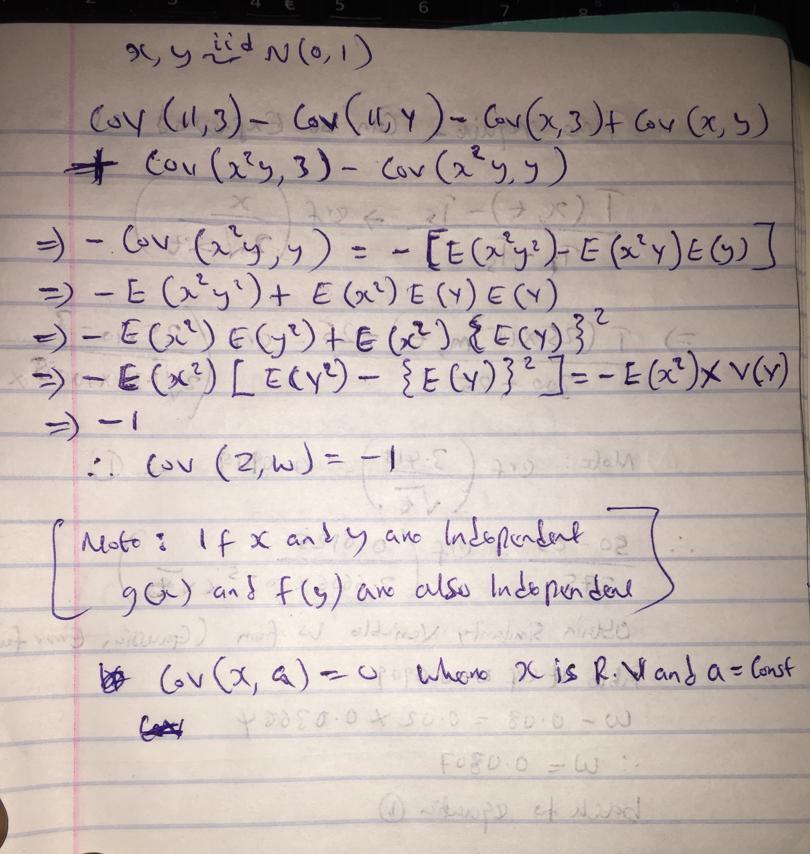 x, y iid~ N(0,1)
Cov(11,3) - Cov(11,Y) - Cov(x,3) + Cov(x,y)
+ Cov(x²y,3) - Cov(x²y,y)
⇒ - Cov(x²y,y) = - [E(x²y²) - E(x²Y)E(y)]
⇒ - E(x²y²) + E(x²)E(Y)E(Y)
⇒ - E(x²)E(y²) + E(x²){E(Y)}²
⇒ - E(x²)[E(Y²) - {E(Y)}²] = -E(x²)×V(Y)
⇒ -1
∴ Cov(Z,W) = -1
[Note: If x and y are Independent
g(x) and f(y) are also Independent]
Cov(x,a) = 0 where x is R.V and a = Const